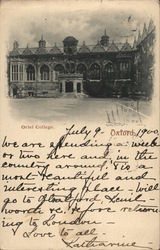 Oxford.
Oriel College.
July 9 - 1900
We are spending a week
or two here and in the
country around - it is
most beautiful and
interesting place - will
go to Stratford, Kenil-
worth &c. before return-
ing to London -
Love to all -
Katharine